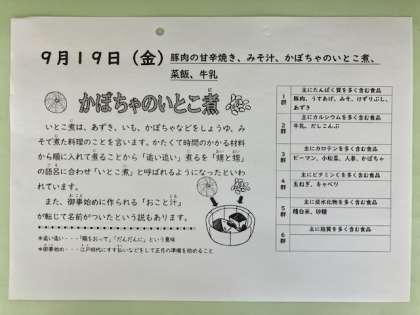 9月19日（金）
豚肉の甘辛焼き、みそ汁、かぼちゃのいとこ煮、
菜飯、牛乳
かぼちゃのいとこ煮
いとこ煮は、あずき、いも、かぼちゃなどをしょうゆ、み
そで煮た料理のことを言います。かたくて時間のかかる材料
から順に入れて煮ることから「追い追い」煮るを「甥と甥」
の語名に合わせ「いとこ煮」と呼ばれるようになったといわ
れています。
また、御事始めに作られる「おこと汁」
が転じて名前がついたという説もあります。
＊追い追い・・・「順をおって」「だんだんに」という意味
＊御事始め・・・江戸時代にすす払いなどをして正月の準備を始めること
1群
主にたんぱく質を多く含む食品
豚肉、うすあげ、みそ、けずりぶし、
あずき
2群
主にカルシウムを多く含む食品
牛乳、だしこんぶ
3群
主にカロテンを多く含む食品
ピーマン、小松菜、人参、かぼちゃ
4群
主にビタミンCを多く含む食品
玉ねぎ、キャベツ
5群
主に炭水化物を多く含む食品
精白米、砂糖
6群
主に脂質を多く含む食品